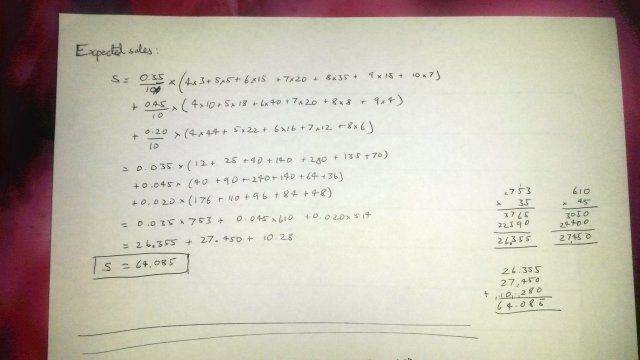 Expected sales:
S = 0.35/10 × (4×3 + 5×5 + 6×15 + 7×20 + 8×35 + 9×15 + 10×7)
+ 0.45/10 × (4×10 + 5×18 + 6×40 + 7×20 + 8×8 + 9×4)
+ 0.20/10 × (4×44 + 5×22 + 6×16 + 7×12 + 8×6)
= 0.035 × (12 + 25 + 90 + 140 + 280 + 135 + 70)
+ 0.045 × (40 + 90 + 240 + 140 + 64 + 36)
+ 0.020 × (176 + 110 + 96 + 84 + 48)
= 0.035 × 753 + 0.045 × 610 + 0.020 × 514
= 26.355 + 27.450 + 10.28
S = 64.085
753
× 35
3765
22590
26,355
610
× 45
3050
24400
27450
26.355
27,450
+ 10.280
64.085